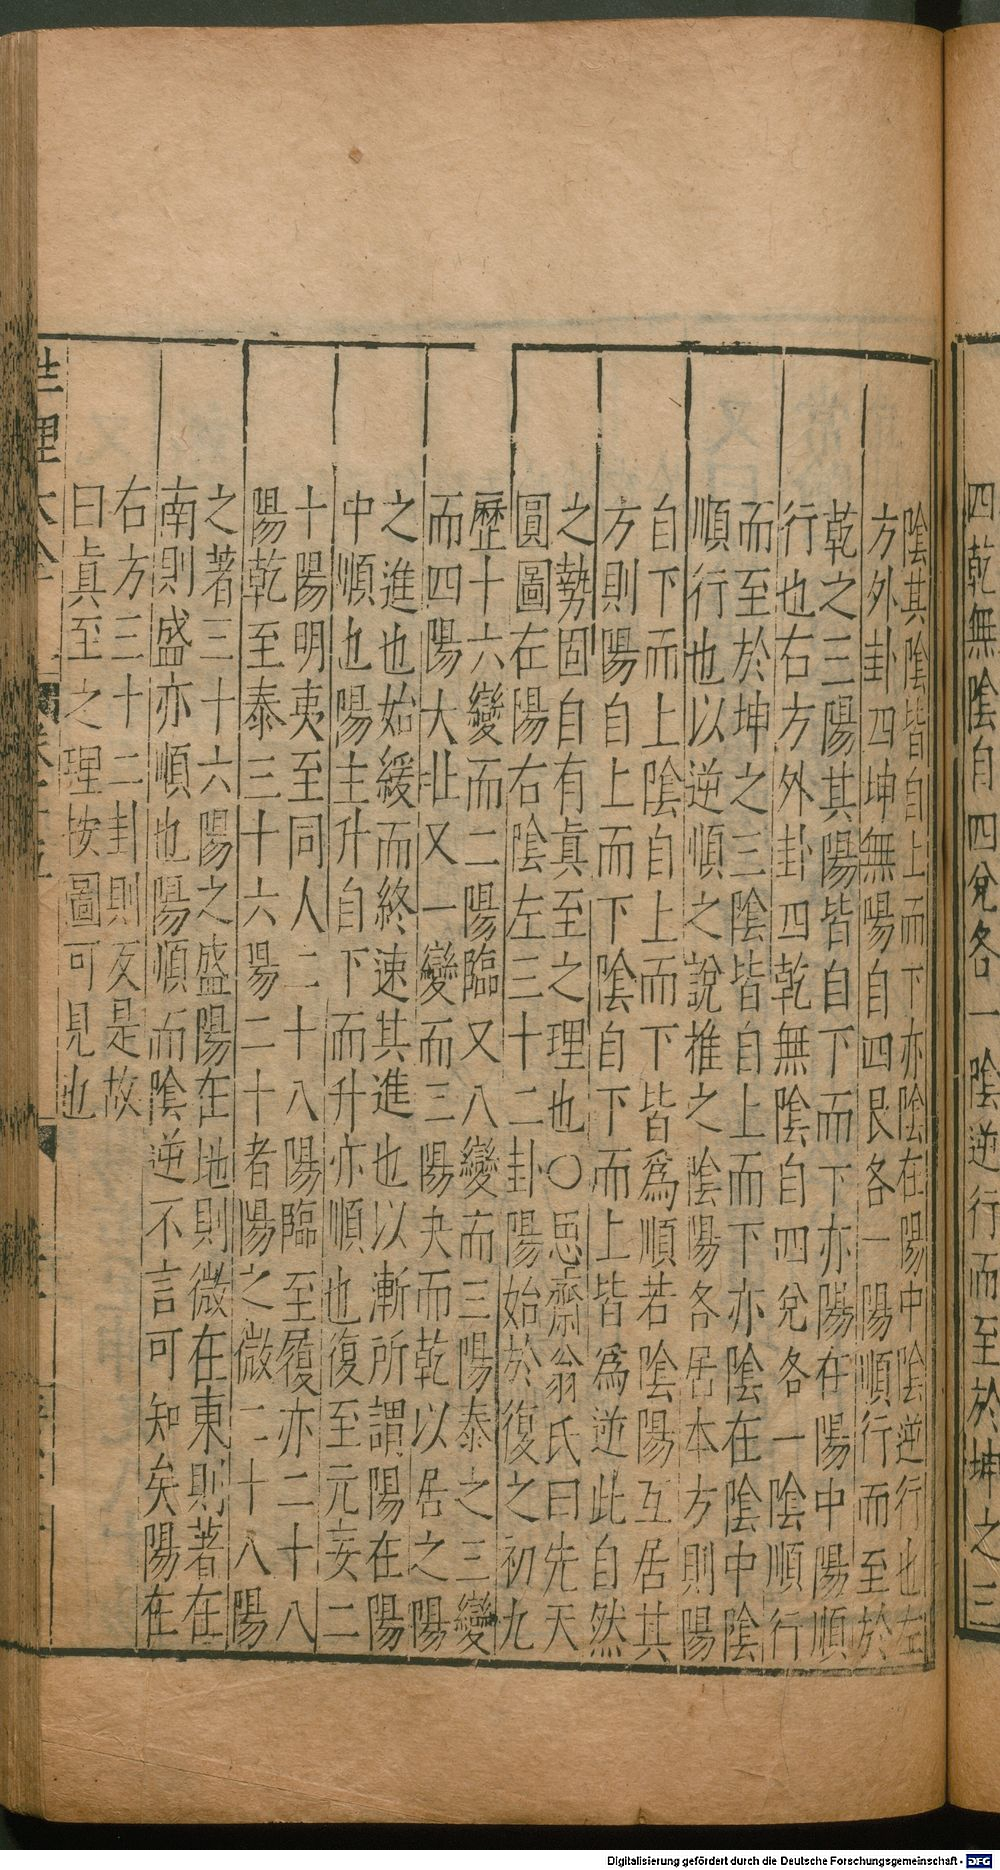 四乾無陰自四兌各一陰逆行而至於坤之三
陰其陰皆自上而下亦陰在陽中陰逆行也左
方外卦四坤無陽自四艮各一陽順行而至於
乾之三陽其陽皆自下而下亦陽在陽中陽順
行也右方外卦四乾無陰自四兌各一陰順行
而至於坤之三陰皆自上而下亦陰在陰中陰
順行也以逆順之說推之陰陽各居本方則陽
自下而上陰自上而下皆爲順若陰陽互居其
方則陽自上而下陰自下而上皆爲逆此自然
之勢固自有眞至之理也○思齋翁氏曰先天
圓圖在陽右陰左三十二卦陽始於復之初九
歷十六變而二陽臨又八變而三陽泰之三變
而四陽大壯又一變而三陽夬而乾以居之陽
之進也始緩而終速其進也以漸所謂陽在陽
中順也陽主升自下而升亦順也復至无妄二
十陽明夷至同人二十八陽臨至履亦二十八
陽乾至泰三十六陽二十者陽之微二十八陽
之著三十六陽之盛陽在地則微在東則著在
南則盛亦順也陽順而陰逆不言可知矣陽在
右方三十二卦則反是故
曰眞至之理按圖可見也
性理大全
卷十五